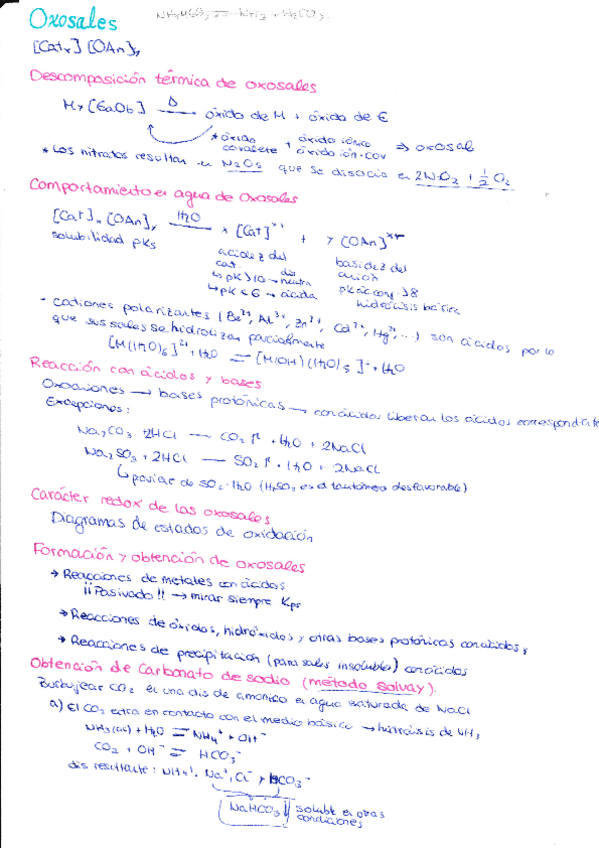 Oxosales
NH4HCO3 ⇌ NH3 + H2CO3
[Catx] [OAn]y
Descomposición térmica de oxosales
Mx [EaOb] —Δ→ óxido de M + óxido de E
* óxido covalente + óxido iónico óxido ión-cov ⇒ oxosal
* Los nitratos resultan en N2O5 que se disocia en 2NO2 + 1/2 O2
Comportamiento en agua de oxosales
[Cat]x [OAn]y —H2O→ x [Cat] + y [OAn]
solubilidad pKs
acidez del cat.
↳ pK>10 → dis neutra
↳ pK<6 → ácida
basidez del anión
hidrólisis básica
- Cationes polarizantes (Be2+, Al3+, Zn2+, Cd2+, Hg2+, ...) son ácidos por lo
que sus sales se hidrolizan parcialmente
[M(H2O)6]2+ + H2O = [M(OH)(H2O)5]
Reacción con ácidos y bases
Oxoaniones → bases protónicas → con ácidos liberan los ácidos correspondientes
Excepciones:
Na2CO3 2HCl — CO2↑ · H2O + 2NaCl
Na2SO3 + 2HCl — SO2↑ · H2O + 2NaCl
↳ de SO2·H2O (H2SO3 es el tautómero desfavorable)
Carácter redox de los oxosales
Diagramas de estados de oxidación
Formación y obtención de oxosales
→ Reacciones de metales con ácidos
¡¡Pasivado!! → mirar siempre Kps
→ Reacciones de óxidos, hidróxidos y otras bases protónicas con ácidos
→ Reacciones de precipitación (para sales insolubles) con ácidos
Obtención de Carbonato de sodio (método Solvay).
Burbujear CO2 en una dis de amoníaco en agua saturada de NaCl
a) El CO2 entra en contacto con el medio básico → hidrólisis de NH3
NH3(ac) + H2O = NH4+ + OH-
CO2 + OH- = HCO3-
dis resultante: NH4+, Na+, Cl- y HCO3-
NaHCO3↓ soluble en otras
condiciones